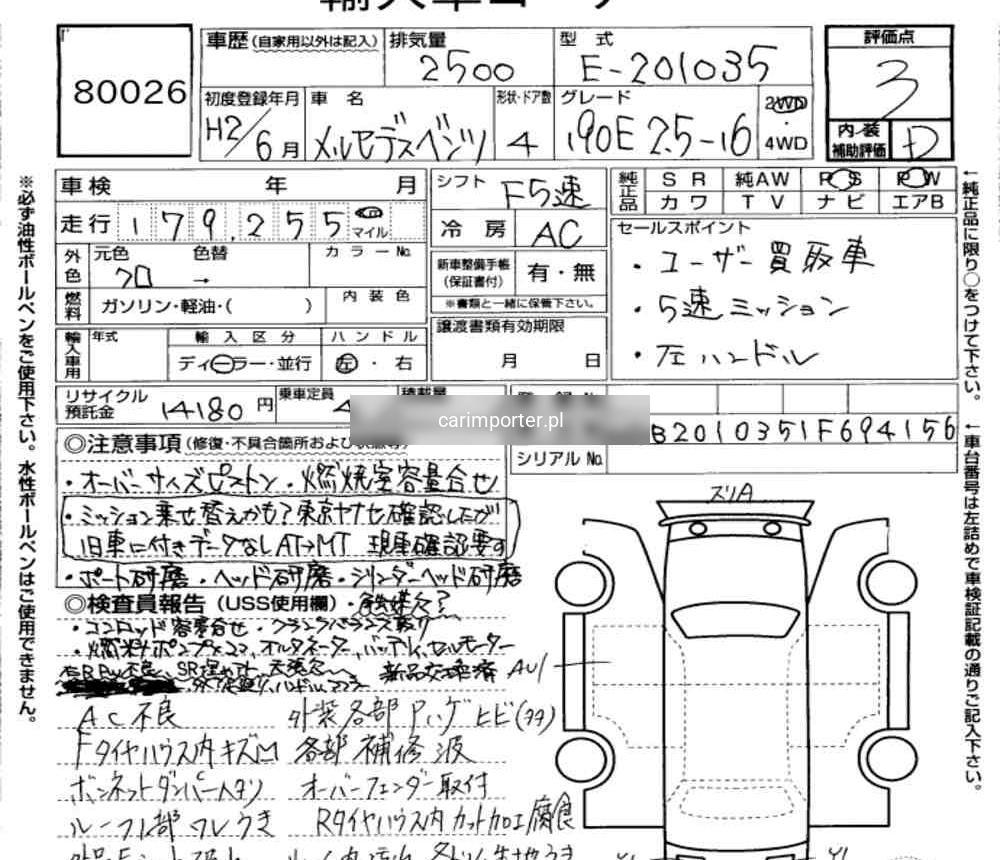 80026
車歴 (自家用以外は記入) 排気量 2500 型式 E-201035 評価点 3
初度登録年月 H2/6月 車名 メルセデスベンツ 形状・ドア数 4 グレード 190E 2.5-16 2WD・4WD 内装補助評価 D
車検 年 月 シフト F5速 純正品 SR 純AW PS PW
カワ TV ナビ エアB
走行 179,255 マイル 冷房 AC
セールスポイント
・ユーザー買取車
・5速ミッション
・左ハンドル
外色 元色 クロ 色替 → カラーNo.
新車整備手帳 (保証書付) 有・無
※書類と一緒に保管下さい。
燃料 ガソリン・軽油・( ) 内装色
輸入車用 年式 輸入区分 ディーラー・並行 ハンドル 左・右
譲渡書類有効期限 月 日
リサイクル預託金 14180円 乗車定員 4 積載量
carimporter.pl
B2010351F694156
シリアルNo.
◎注意事項 (修復・不具合箇所および
・オーバーサイズピストン ・燃焼室容量合せ
・ミッション乗せ替えかも?東京ヤナセ確認したが
旧車に付きデータなし AT→MT 現車確認要す
・ポート研磨 ・ヘッド研磨 ・シリンダーヘッド研磨
◎検査員報告 (USS使用欄)
・コンロッド容量合せ ・クランクバランス取り
・燃料ポンプ オルタネーター、バッテリー、セルモーター
新品交換済
AC不良 外装各部 Pハゲ ヒビ(タタ)
Fタイヤハウス内キズ 各部補修波
ボンネットダンパーヘタリ オーバーフェンダー取付
Rタイヤハウス内カット加工腐食
ズリA
AU1
※必ず油性ボールペンをご使用下さい。水性ボールペンはご使用できません。
←純正品に限り○をつけて下さい。
←車台番号は左詰めで車検証記載の通りご記入下さい。